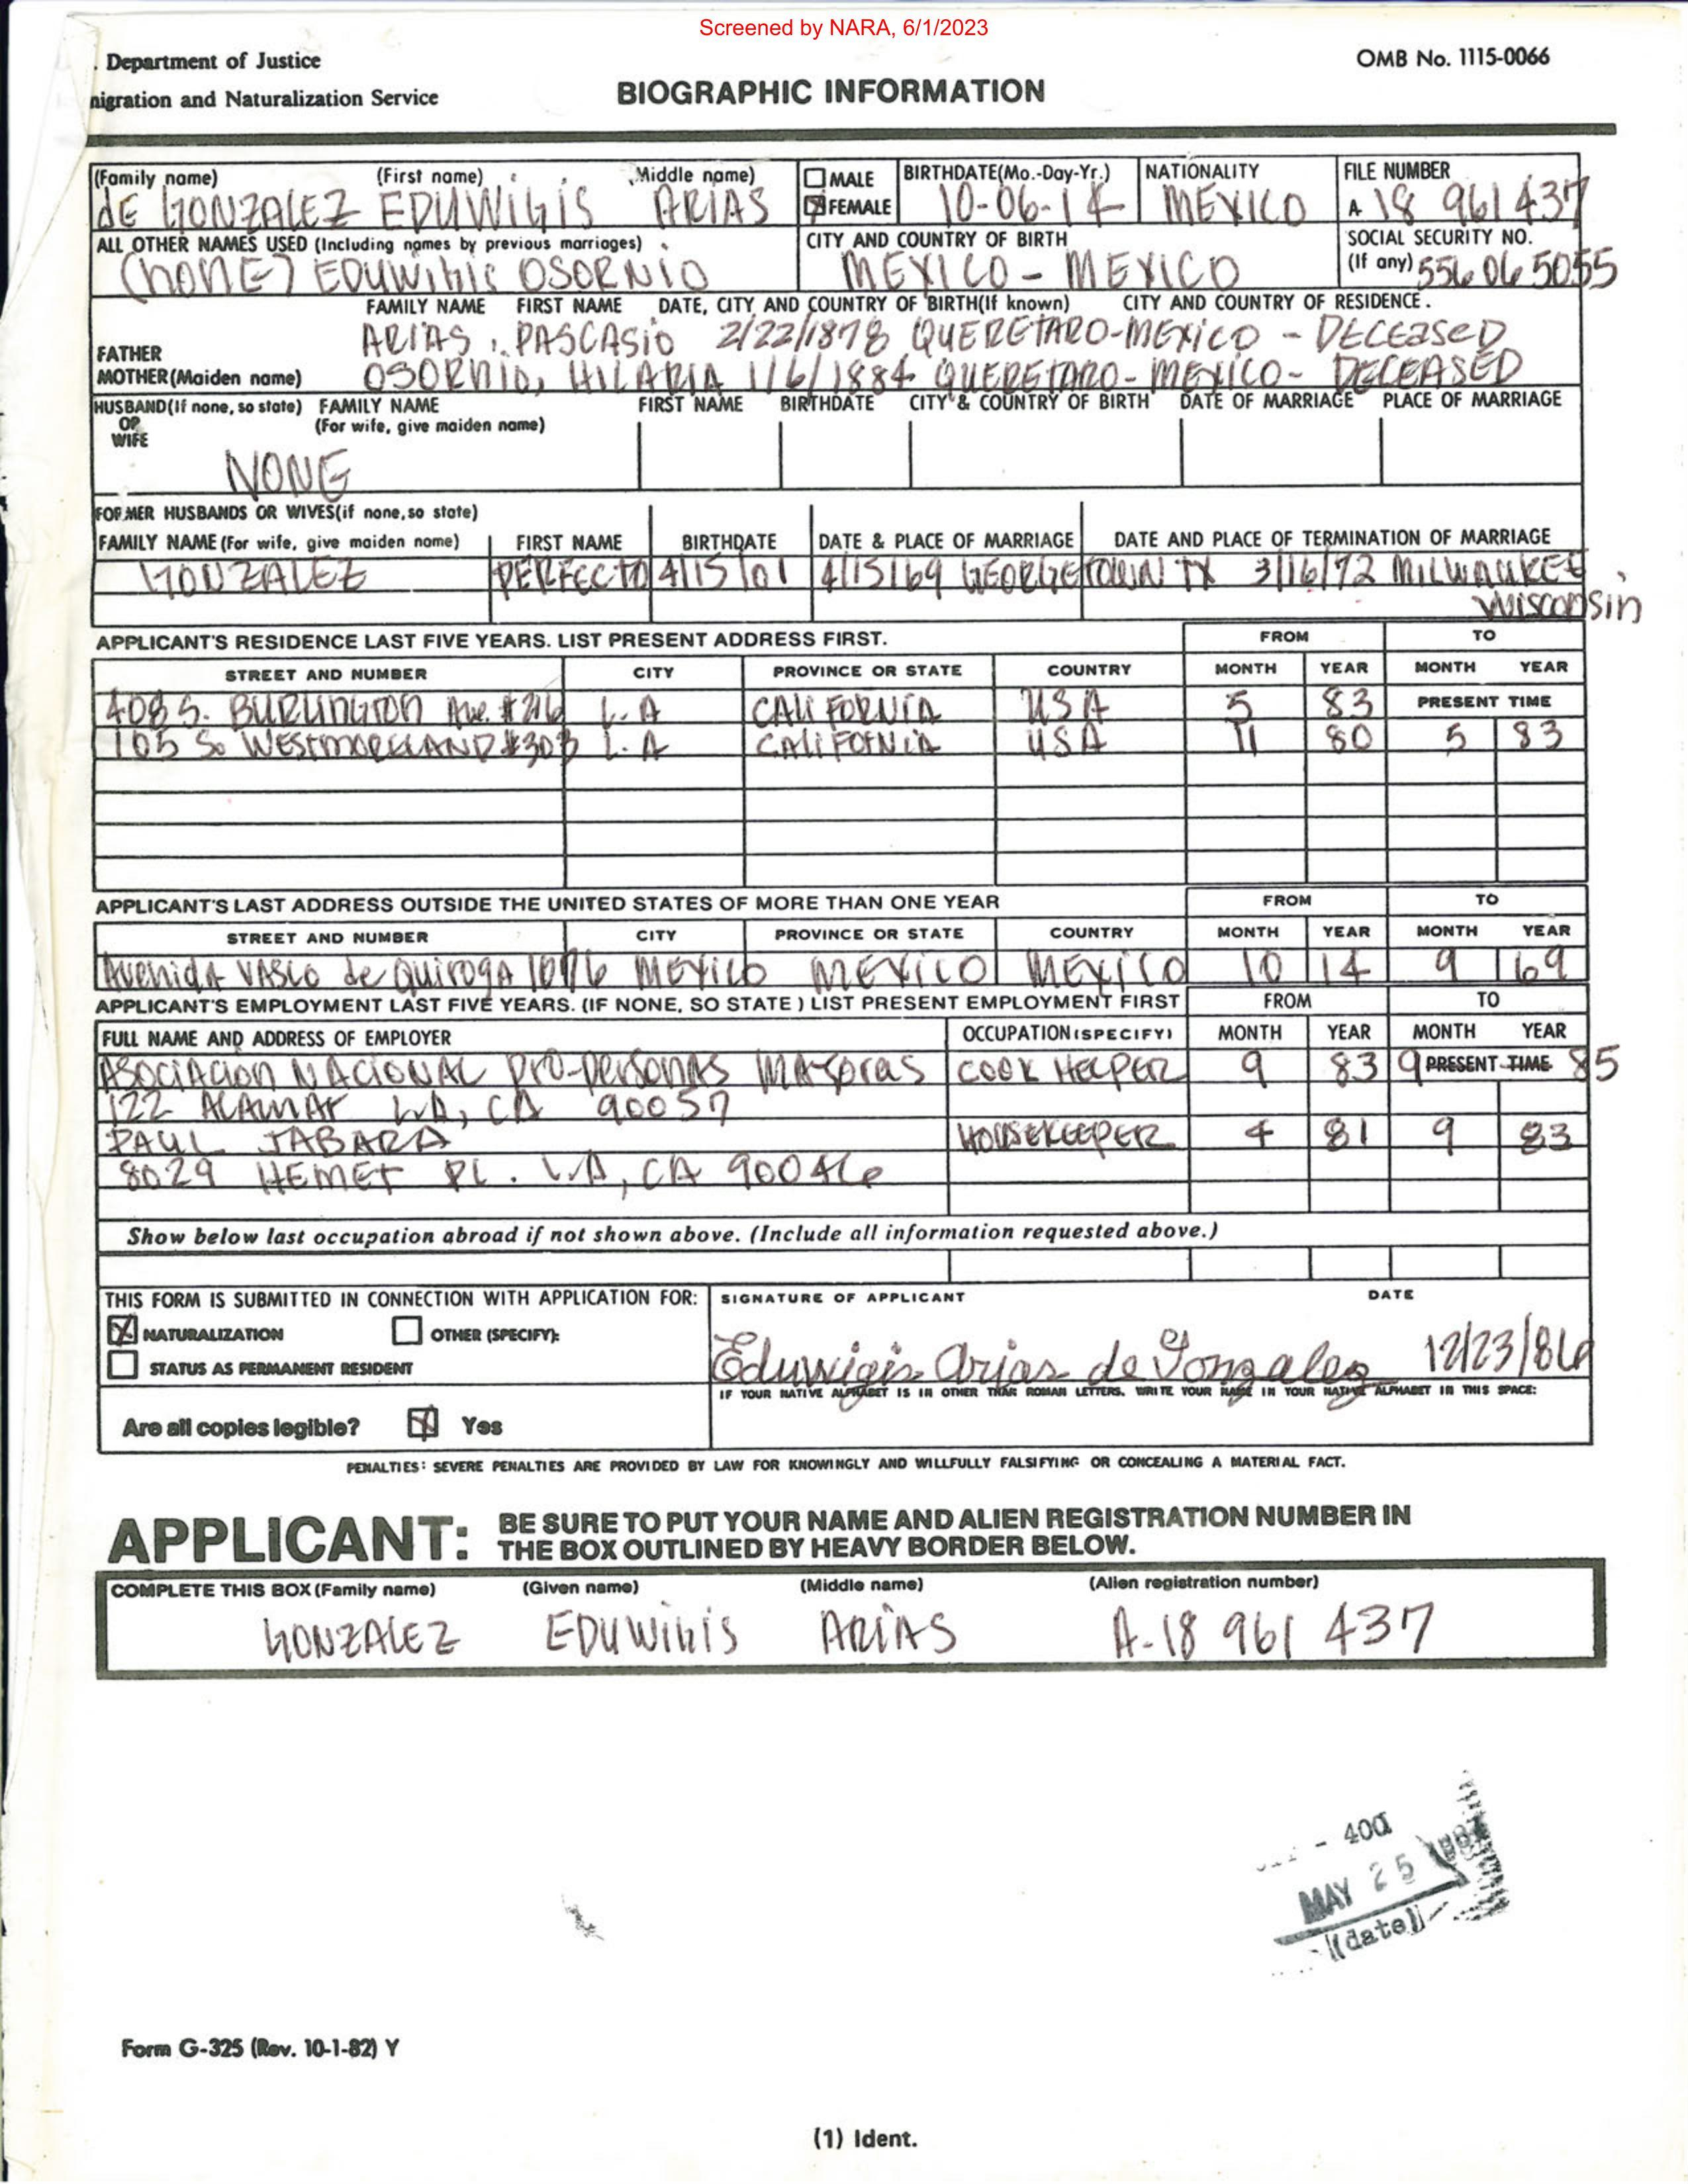 Screened by NARA, 6/1/2023
. Department of Justice
OMB No. 1115-0066
nigration and Naturalization Service
BIOGRAPHIC INFORMATION
(Family name) (First name) (Middle name) MALE BIRTHDATE(Mo.-Day-Yr.) NATIONALITY FILE NUMBER
dE GONZALEZ EDUWIGIS ARIAS FEMALE 10-06-14 MEXICO A 18 961 437
ALL OTHER NAMES USED (Including names by previous marriages) CITY AND COUNTRY OF BIRTH SOCIAL SECURITY NO.
(NONE) EDUWIGIS OSORNIO MEXICO - MEXICO (If any) 556 06 5055
FAMILY NAME FIRST NAME DATE, CITY AND COUNTRY OF BIRTH(If known) CITY AND COUNTRY OF RESIDENCE.
FATHER ARIAS, PASCASIO 2/22/1878 QUERETARO-MEXICO - DECEASED
MOTHER(Maiden name) OSORNIO, HILARIA 1/6/1884 QUERETARO-MEXICO- DECEASED
HUSBAND(If none, so state) FAMILY NAME FIRST NAME BIRTHDATE CITY & COUNTRY OF BIRTH DATE OF MARRIAGE PLACE OF MARRIAGE
OR (For wife, give maiden name)
WIFE
NONE
FORMER HUSBANDS OR WIVES(if none, so state)
FAMILY NAME (For wife, give maiden name) FIRST NAME BIRTHDATE DATE & PLACE OF MARRIAGE DATE AND PLACE OF TERMINATION OF MARRIAGE
GONZALEZ PERFECTO 4/15/01 4/15/69 GEORGETOWN TX 3/16/72 MILWAUKEE,
WISCONSIN
APPLICANT'S RESIDENCE LAST FIVE YEARS. LIST PRESENT ADDRESS FIRST. FROM TO
STREET AND NUMBER CITY PROVINCE OR STATE COUNTRY MONTH YEAR MONTH YEAR
408 S. BURLINGTON Ave. #216 L.A CALIFORNIA USA 5 83 PRESENT TIME
105 So WESTMORELAND #303 L.A CALIFOTNIA USA 11 80 5 83
APPLICANT'S LAST ADDRESS OUTSIDE THE UNITED STATES OF MORE THAN ONE YEAR FROM TO
STREET AND NUMBER CITY PROVINCE OR STATE COUNTRY MONTH YEAR MONTH YEAR
Avenida VASCO de Quiroga 1076 MEXICO MEXICO MEXICO 10 14 9 69
APPLICANT'S EMPLOYMENT LAST FIVE YEARS. (IF NONE, SO STATE) LIST PRESENT EMPLOYMENT FIRST FROM TO
FULL NAME AND ADDRESS OF EMPLOYER OCCUPATION (SPECIFY) MONTH YEAR MONTH YEAR
ASOCIACION NACIONAL pro-personas MAYORES COOK HELPER 9 83 9 PRESENT TIME 85
122 ALAMAR L.A, CA 90057
PAUL JABARA HOUSEKEEPER 4 81 9 83
8029 HEMET PL. L.A, CA 90046
Show below last occupation abroad if not shown above. (Include all information requested above.)
THIS FORM IS SUBMITTED IN CONNECTION WITH APPLICATION FOR: SIGNATURE OF APPLICANT DATE
NATURALIZATION OTHER (SPECIFY):
STATUS AS PERMANENT RESIDENT
Eduwigis Arias de Gonzalez 12/23/86
IF YOUR NATIVE ALPHABET IS IN OTHER THAN ROMAN LETTERS, WRITE YOUR NAME IN YOUR NATIVE ALPHABET IN THIS SPACE:
Are all copies legible? Yes
PENALTIES: SEVERE PENALTIES ARE PROVIDED BY LAW FOR KNOWINGLY AND WILLFULLY FALSIFYING OR CONCEALING A MATERIAL FACT.
APPLICANT: BE SURE TO PUT YOUR NAME AND ALIEN REGISTRATION NUMBER IN
THE BOX OUTLINED BY HEAVY BORDER BELOW.
COMPLETE THIS BOX (Family name) (Given name) (Middle name) (Alien registration number)
GONZALEZ EDUWIGIS ARIAS A-18 961 437
- 400
MAY 25 1987
(date)
Form G-325 (Rev. 10-1-82) Y
(1) Ident.